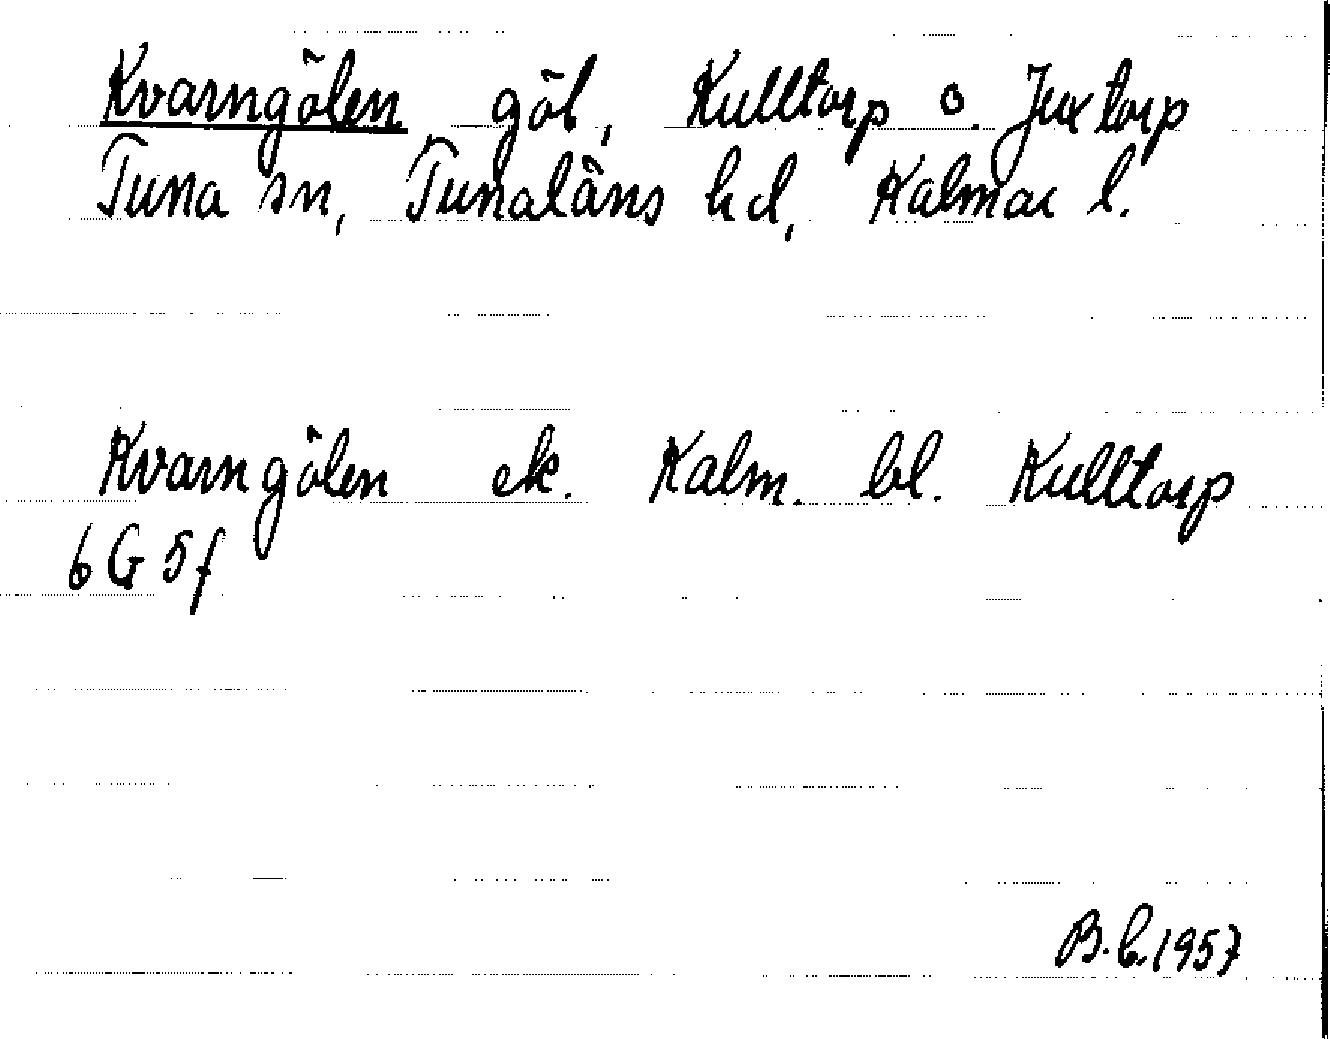 Kvarngölen göl, Kulltorp o. Juxtorp
Tuna sn, Tunaläns hd, Kalmar l.
Kvarngölen ek. Kalm. bl. Kulltorp
6 G 5 f
B.L. 1957